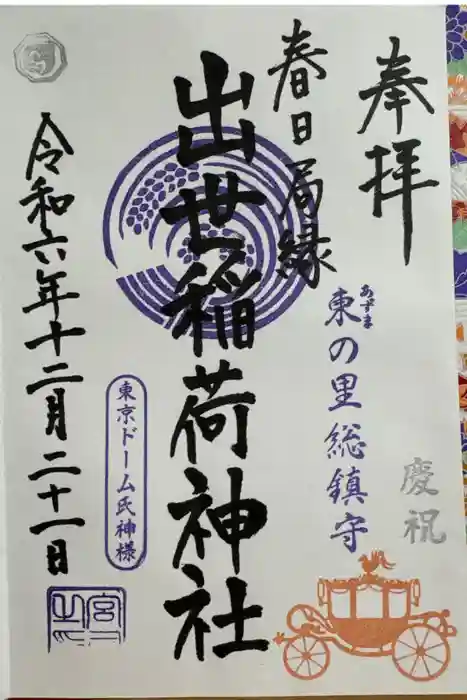 奉拝
春日局縁
あずま
東の里総鎮守
慶祝
出世稲荷神社
東京ドーム氏神様
令和六年十二月二十一日